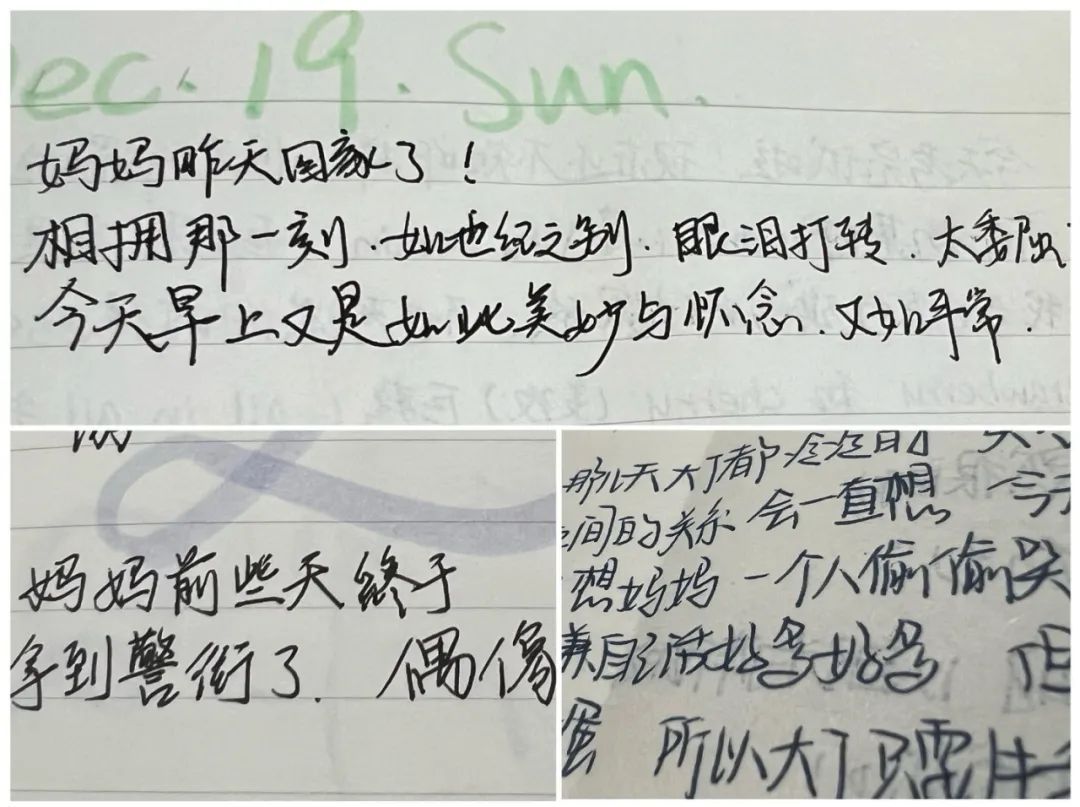 ec. 19. Sun.
妈妈昨天回家了！
相拥那一刻、如世纪之别、眼泪打转、太委屈
今天早上又是如此美妙与怀念、又如平常.
妈妈前些天终于
拿到警衔了. 偶像
那几天大丁都冷冷的
间的关系 会一直想
想妈妈 一个人偷偷哭
所以大丁只需